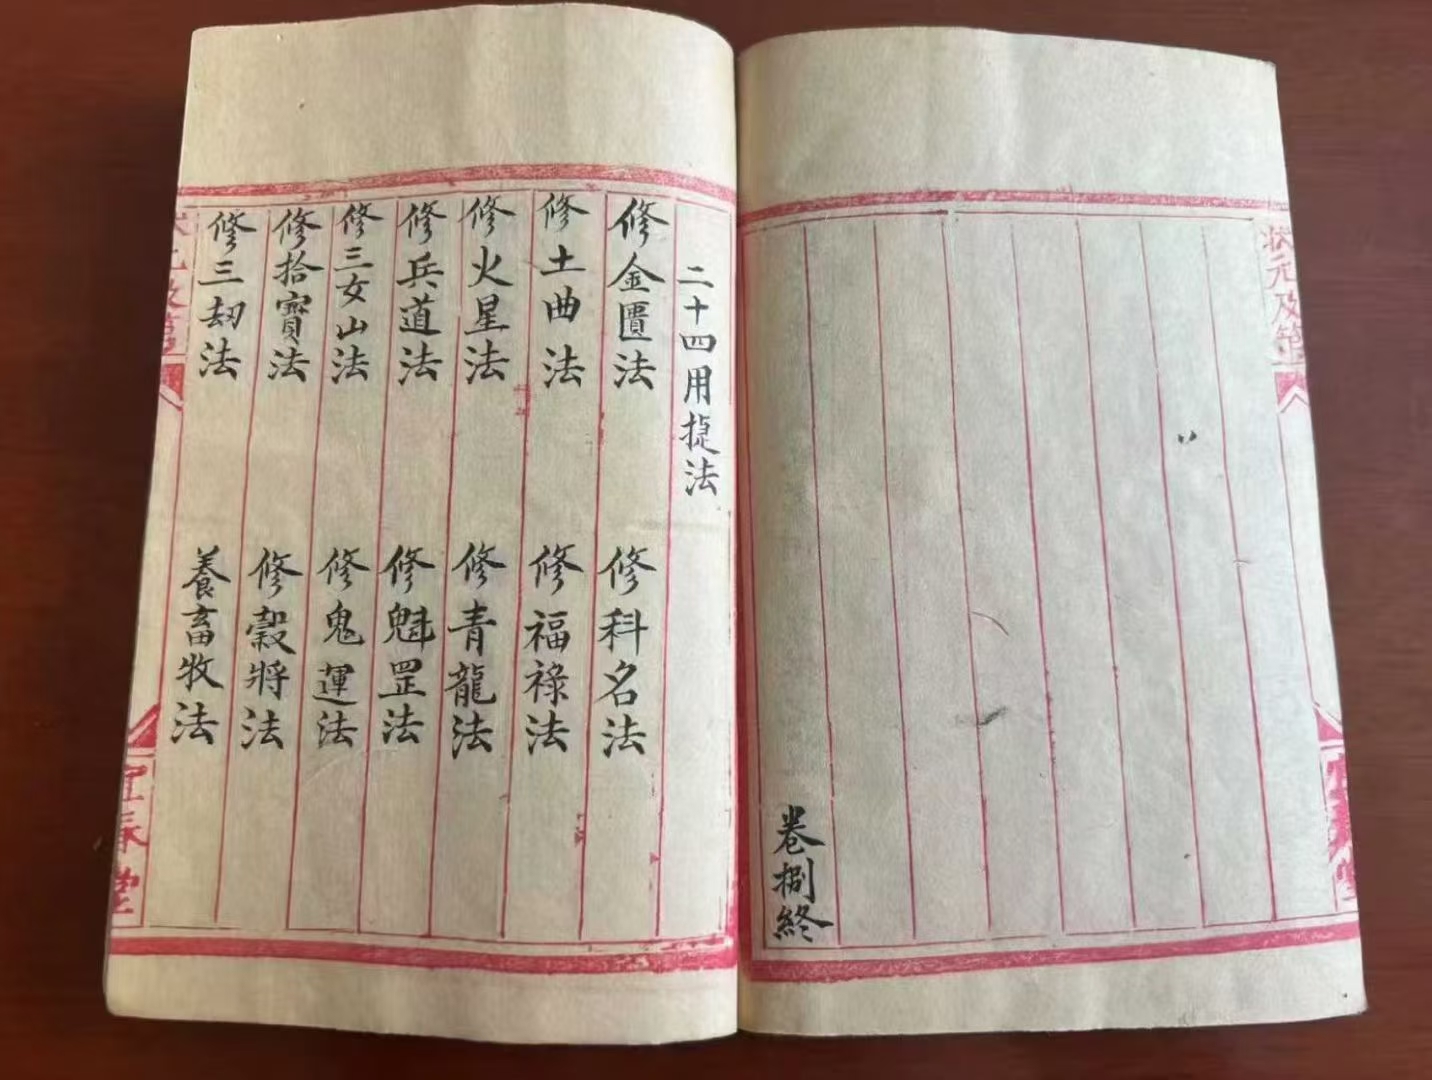 状元及第
卷捌終
二十四用捷法
修金匱法
修科名法
修土曲法
修福祿法
修火星法
修青龍法
修兵道法
修魁罡法
修三女山法
修鬼運法
修拾寶法
修穀將法
修三刼法
養畜牧法
宜春堂